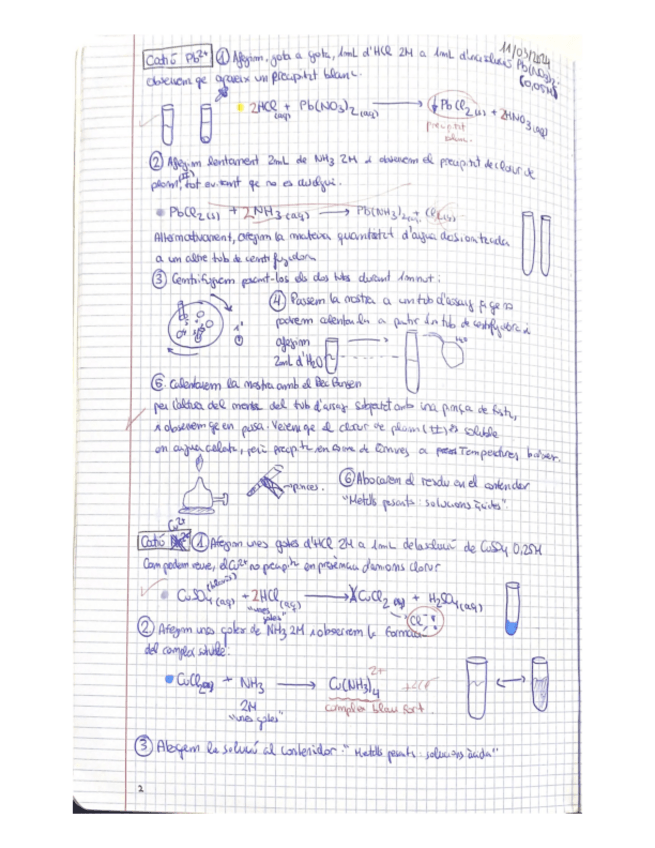 11/03/2024
Catió Pb2+ ① Afegim, gota a gota, 1mL d'HCl 2M a 1mL d'una solució Pb(NO3)2
(0,05M)
observem que apareix un precipitat blanc.
2HCl (aq) + Pb(NO3)2 (aq) → ↓PbCl2 (s) + 2HNO3 (aq)
precipitat
blanc
② Afegim lentament 2mL de NH3 2M i observem el precipitat de clorur de
plom (II), tot evitant que no es dilueixi.
PbCl2 (s) + 2NH3 (aq) → Pb(NH3)2
Alternativament, afegim la mateixa quantitat d'aigua desionitzada
a un altre tub de centrífugador.
③ Centrifuguem posant-los els dos tubs durant 1minut:
1'
④ Passem la mostra a un tub d'assaig ja que no
podrem a partir d'un tub de
afegim
2mL d'H2O
H2O
⑤ Calentarem la mostra amb el Bec Bunsen
per l'altura del del tub d'assaig subjectat amb una pinça de fusta,
i observem que en passa. Veiem que el clorur de plom (II) és soluble
en aigua calenta, però precipita en forma de a Temperatures baixes.
pinces.
⑥ Abocarem el residu en el contenidor
"Metalls pesants: solucions àcides".
Cu2+
Catió ① Afegim unes gotes d'HCl 2M a 1mL de la solució de CuSO4 0,25M
Com podem veure, el Cu2+ no precipita en presència d'anions clorur
(blavós)
CuSO4 (aq) + 2HCl (aq) → CuCl2 (aq) + H2SO4 (aq)
"unes
gotes"
② Afegim unes gotes de NH3 2M i observem la formació
del complex soluble.
CuCl2 (aq) + NH3 → Cu(NH3)4 2+
2M
"unes gotes"
complex blau fort.
③ Aboquem la solució al contenidor: "Metalls pesants: solucions àcida"
2